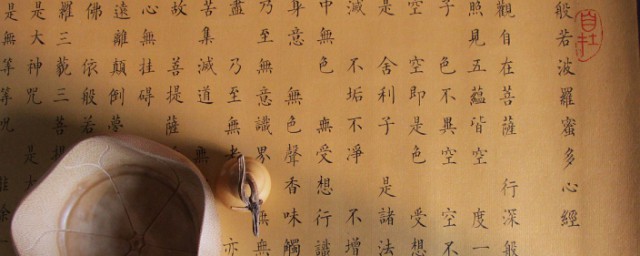 般若波羅蜜多心經
觀自在菩薩 行深般
照見五蘊皆空 度一
子 色不異空 空不
空 空即是色 受想
是 舍利子 是諸法
滅 不垢不淨 不增
中無色 無受想行識
身意 無色聲香味觸
乃至無意識界 無無
盡 乃至無老 亦
苦集滅道 無
故 菩提薩
心無挂礙
遠離顛倒夢
佛 依般若
羅三藐三菩提
是大神咒 是大
是無等等咒